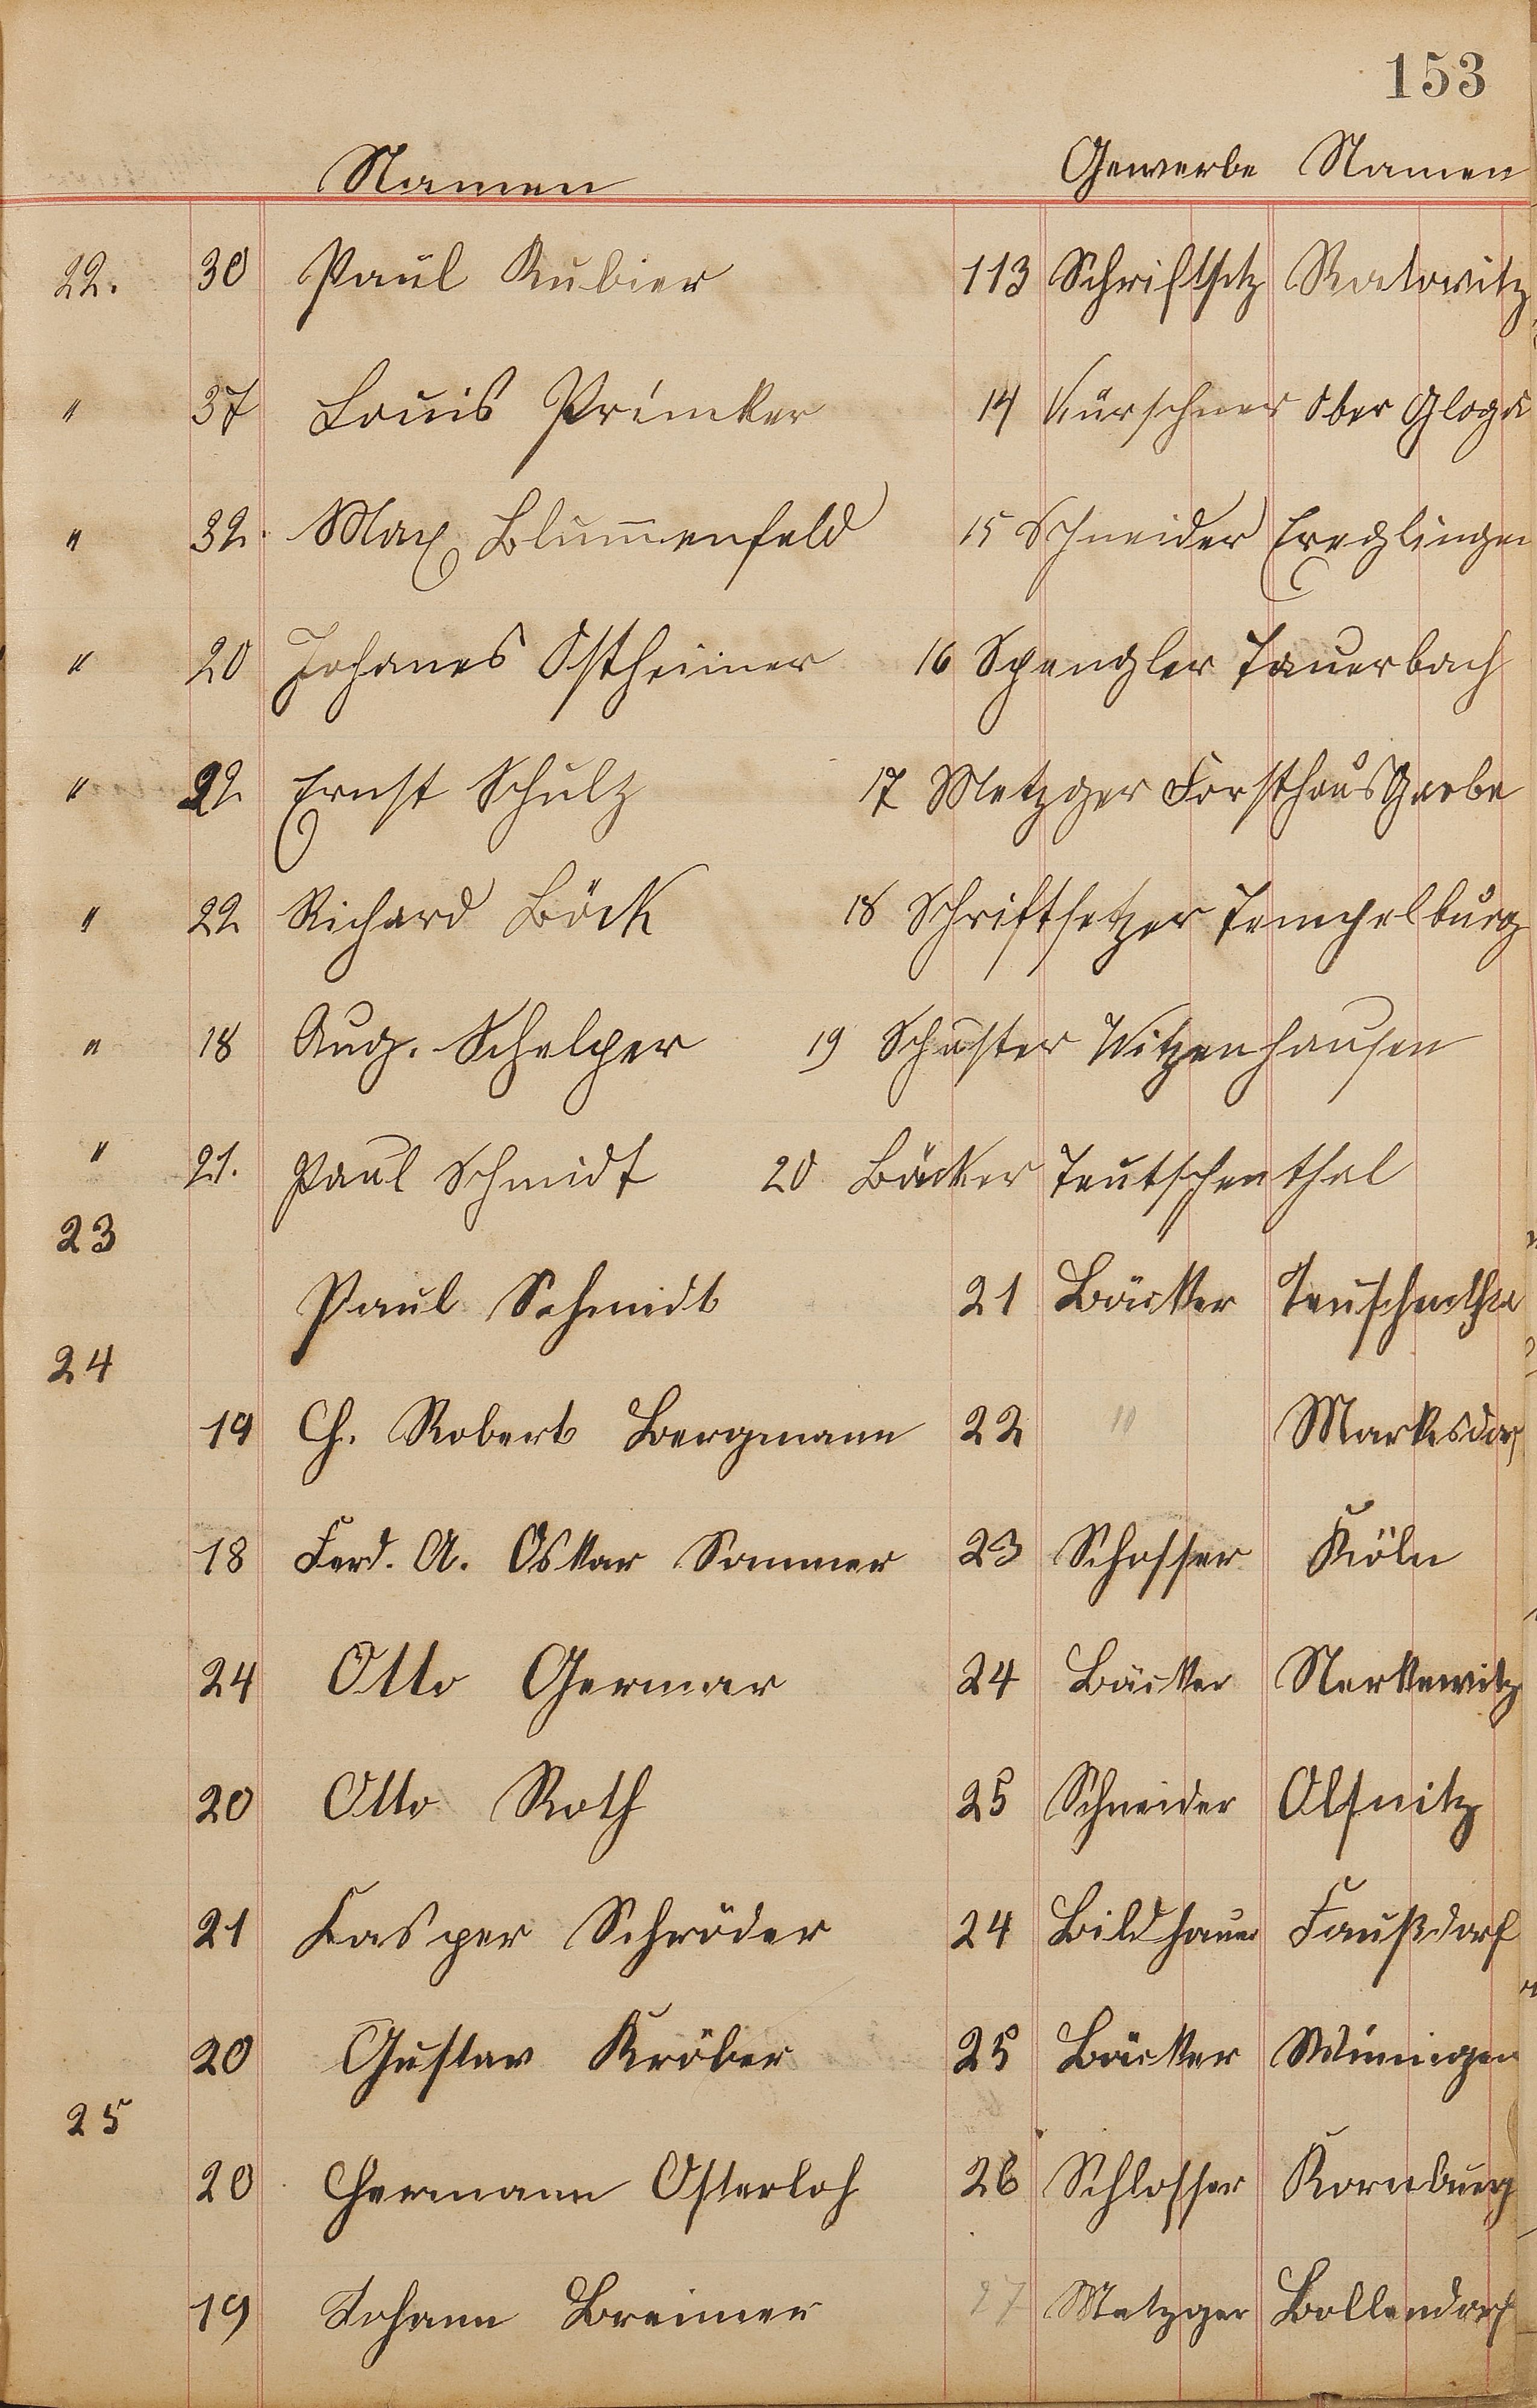 153
Namen Gewerbe Namen
22. 30 Paul Kubier 113 Schriftsetz Ratowitz
" 37 Louis Primker 14 Kürschner Ober Glogau
" 32. Max Blum̅enfeld 15 Schneider Creglingen
" 20 Johanes Ostheimer 16 Spengler Tauerbach
" 22 Ernst Schulz 17 Metzger Forsthaus Grebe
" 22 Richard Böck 18 Schriftsetzer Tempelburg
" 18 Aug. Schelper 19 Schuster Witzenhausen
" 21. Paul Schmidt 20 Bäcker Teutschenthal
23
Paul Schmidt 21 Bäcker Teuschentha
24
19 Ch. Robert Bergmann 22 " Markesdorf
18 Ferd. A. Oskar Sommer 23 Schosser Köln
24 Otto Germar 24 Bäcker Nerkewitz
20 Otto Roth 25 Schneider Olsnitz
21 Kasper Schröder 24 Bildhauer Faußdorf
20 Gustav Kröber 25 Bäcker Winningen
25
20 Hermann Osterloh 26 Schlosser Kornburg
19 Johann Breimer 27 Metzger Bollendorf